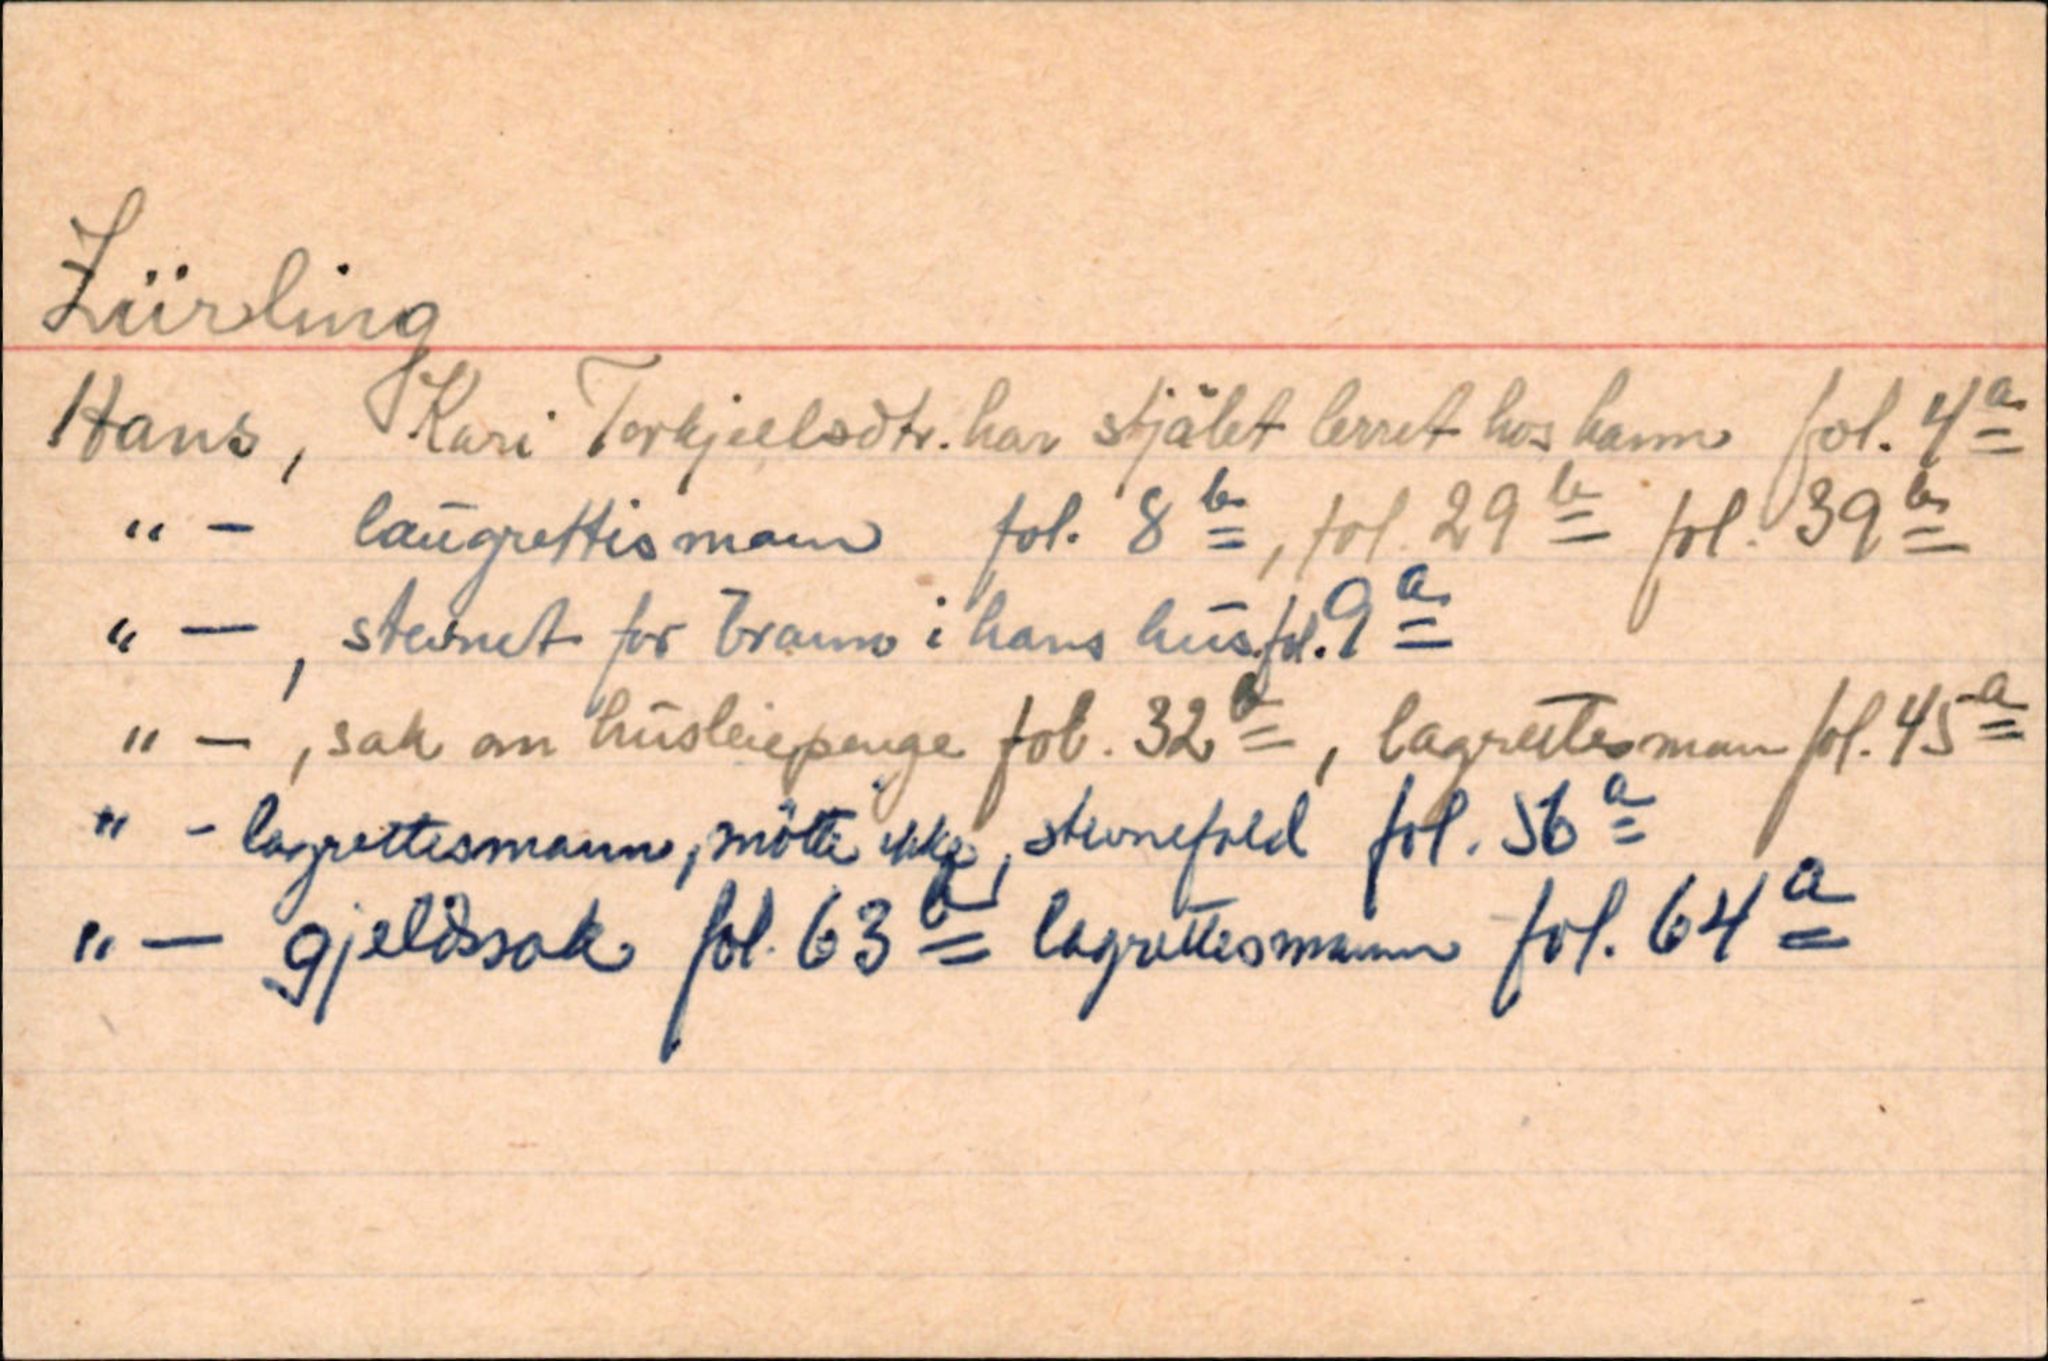 Zürling
Hans, Kari Torkjeelsdtr. har stjålet lerret hos hann fol. 4a
" - laugrettismann fol. 8b, fol. 29b fol. 39b
" - , stevnet for i hans hus. fol. 9a
" - , sak om husleiepenge fol. 32b, lagrettesman fol. 45a
" - lagrettesmann, mötte ikke, stevnefald fol. 56a
" - gjeldssak fol. 63b lagrettesmann fol. 64a